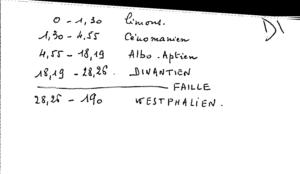 D1
0 - 1,30 Limons.
1,30 - 4,55 Cénomanien
4,55 - 18,19 Albo-Aptien
18,19 - 28,26. DINANTIEN
FAILLE
28,26 - 190 WESTPHALIEN.